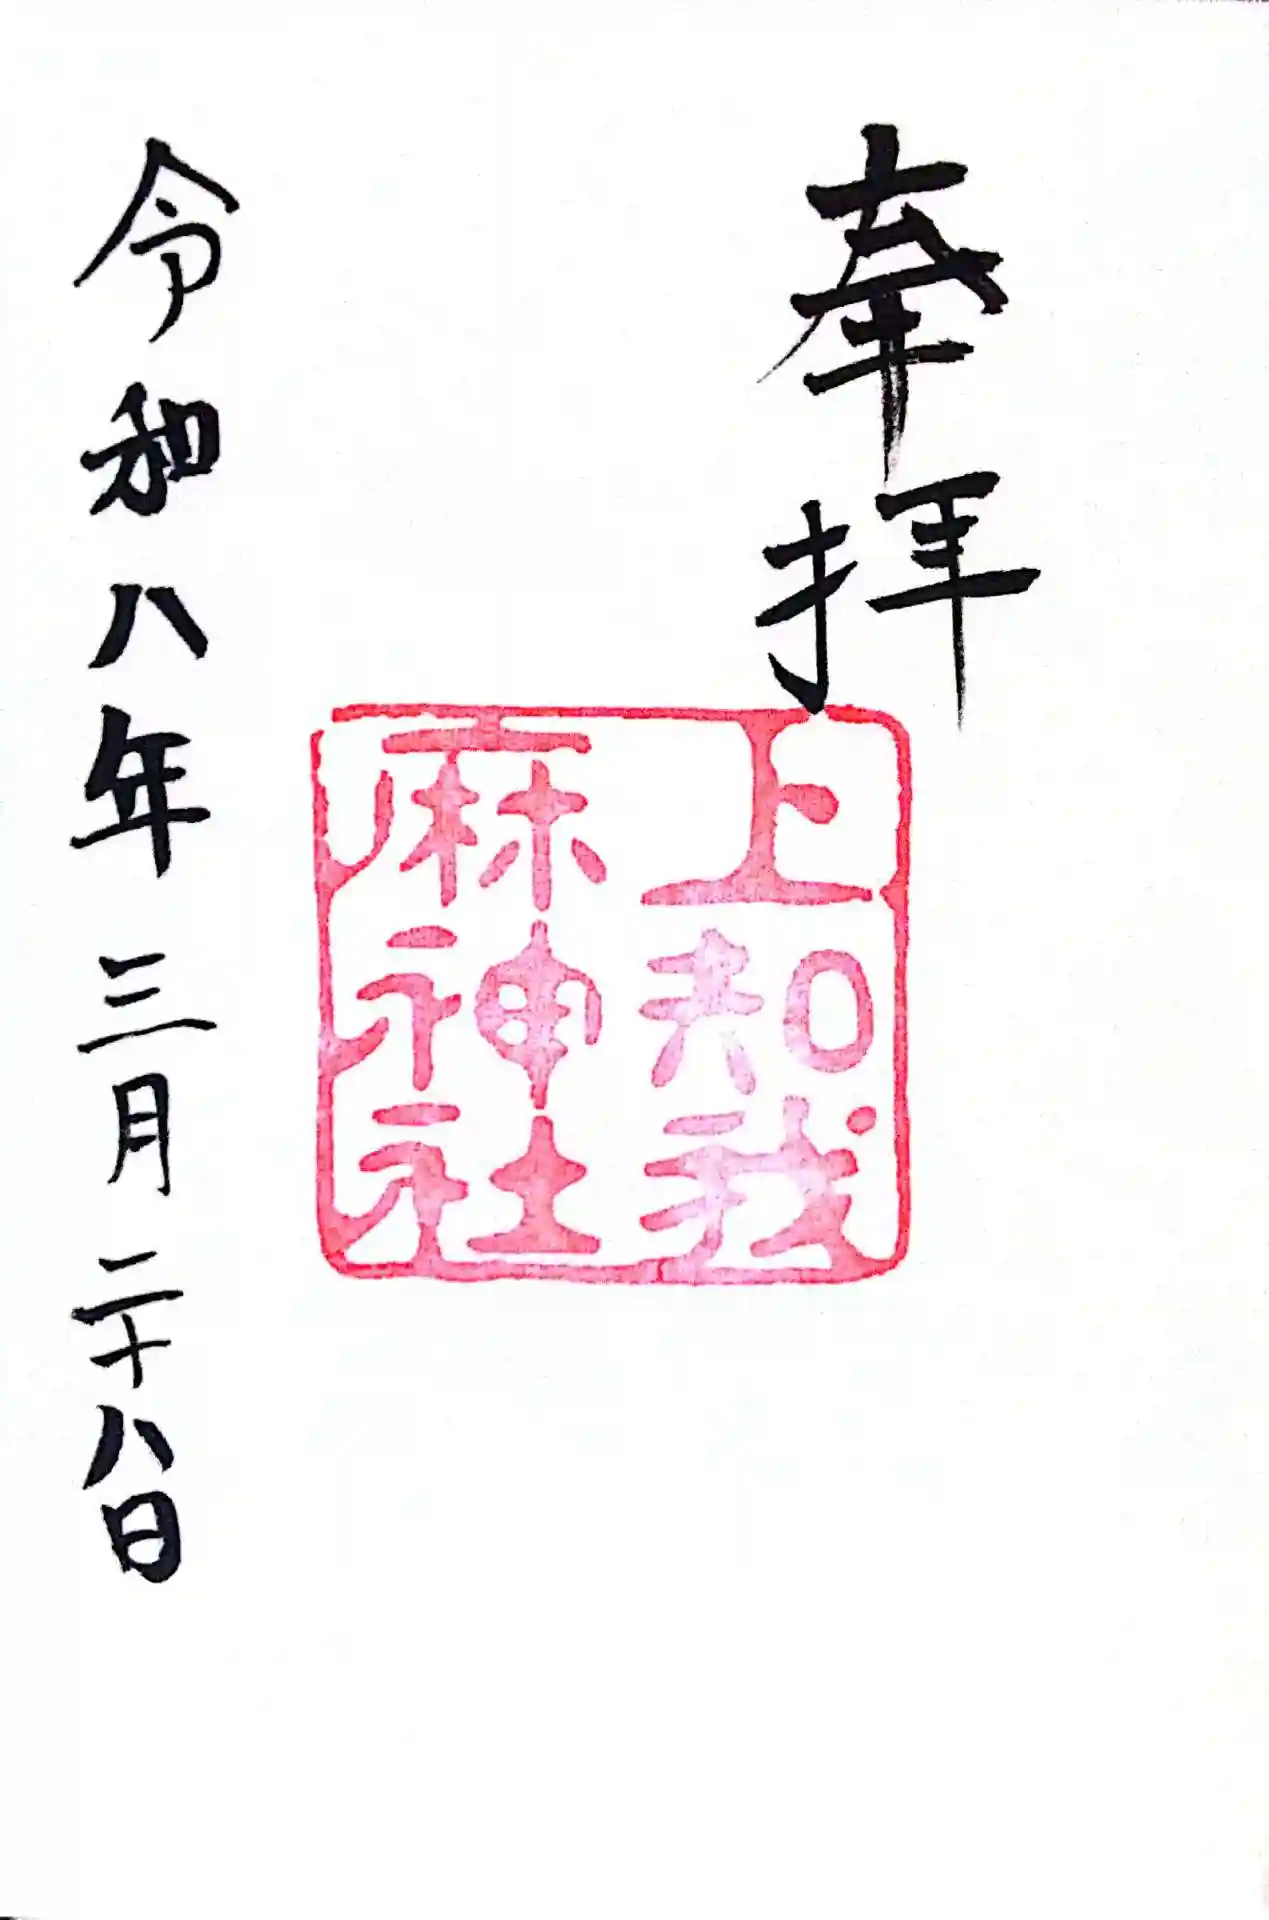 奉拝
上知我
麻神社
令和八年三月二十八日